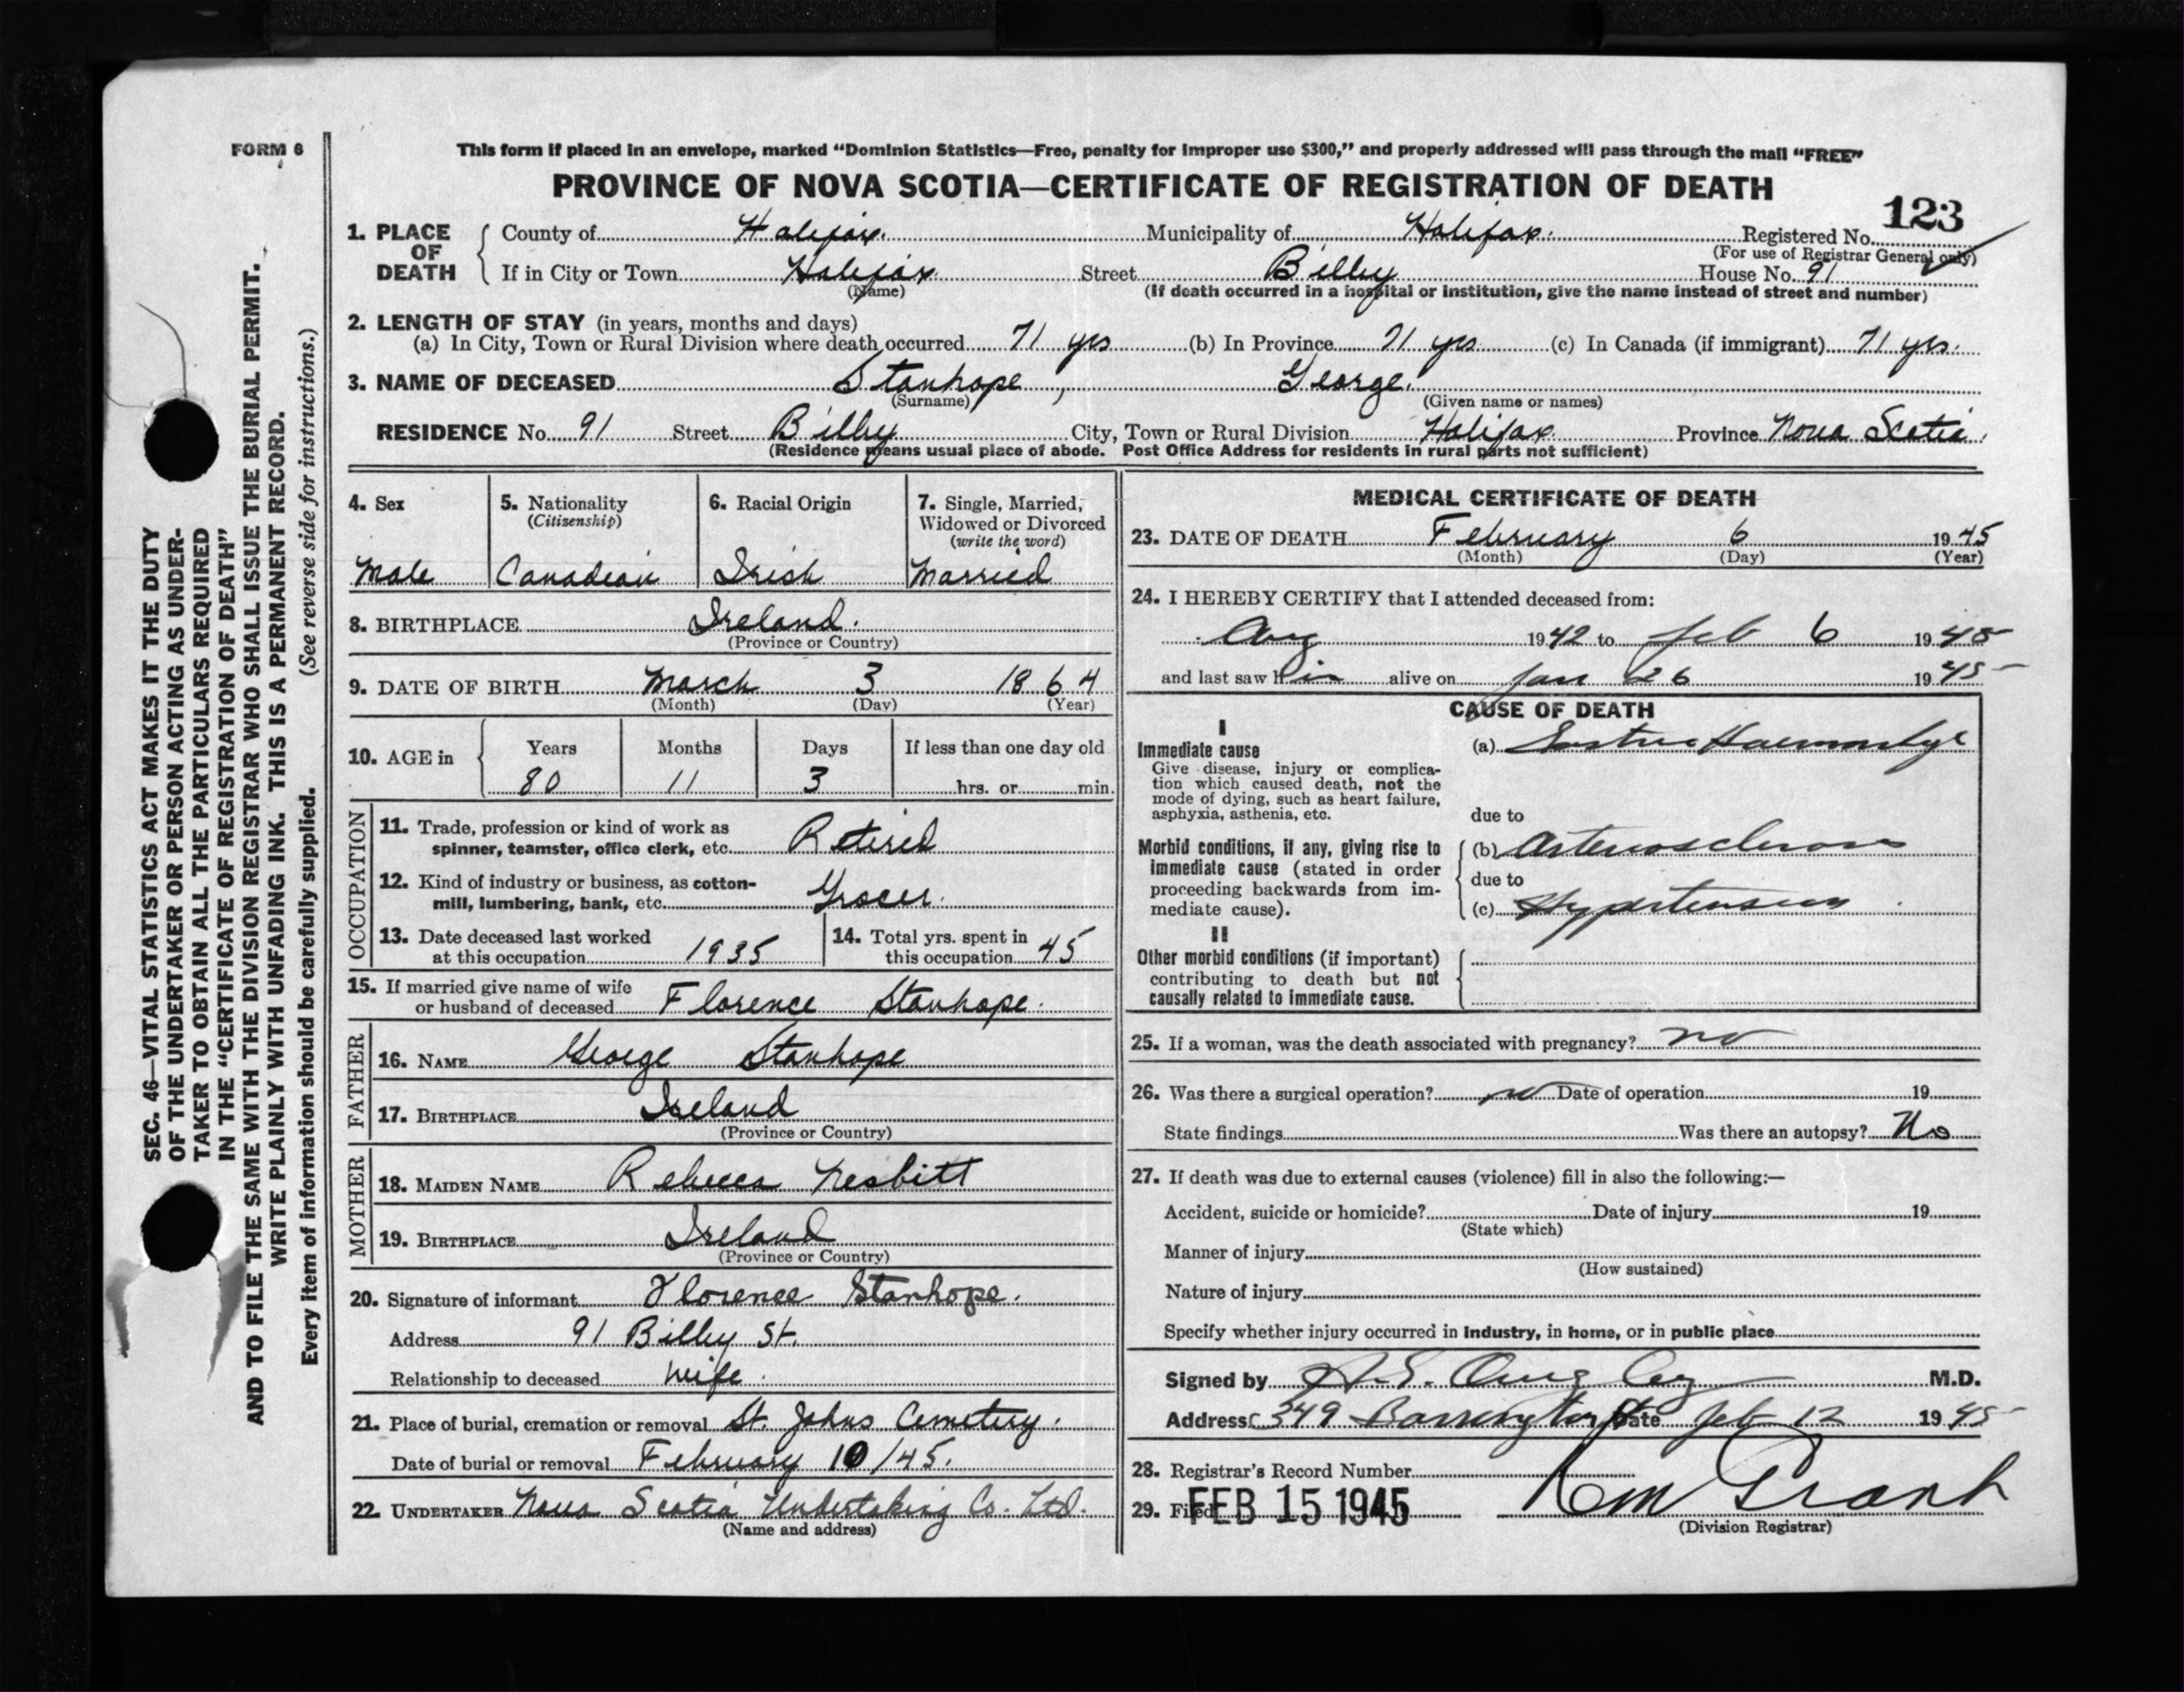 FORM 6
This form if placed in an envelope, marked "Dominion Statistics—Free, penalty for improper use $300," and properly addressed will pass through the mail "FREE"
PROVINCE OF NOVA SCOTIA—CERTIFICATE OF REGISTRATION OF DEATH
123
1. PLACE OF DEATH
County of Halifax. Municipality of Halifax. Registered No.
(For use of Registrar General only)
If in City or Town Halifax Street Bilby House No. 91
(Name) (If death occurred in a hospital or institution, give the name instead of street and number)
2. LENGTH OF STAY (in years, months and days)
(a) In City, Town or Rural Division where death occurred 71 yrs (b) In Province 71 yrs (c) In Canada (if immigrant) 71 yrs.
3. NAME OF DECEASED Stanhope, George.
(Surname) (Given name or names)
RESIDENCE No. 91 Street Bilby City, Town or Rural Division Halifax Province Nova Scotia.
(Residence means usual place of abode. Post Office Address for residents in rural parts not sufficient)
4. Sex
Male
5. Nationality
(Citizenship)
Canadian
6. Racial Origin
Irish
7. Single, Married,
Widowed or Divorced
(write the word)
Married
8. BIRTHPLACE Ireland.
(Province or Country)
9. DATE OF BIRTH March 3 1864
(Month) (Day) (Year)
10. AGE in
Years Months Days If less than one day old
80 11 3 hrs. or min.
OCCUPATION
11. Trade, profession or kind of work as
spinner, teamster, office clerk, etc. Retired
12. Kind of industry or business, as cotton-
mill, lumbering, bank, etc. Grocer.
13. Date deceased last worked
at this occupation 1935
14. Total yrs. spent in
this occupation 45
15. If married give name of wife
or husband of deceased Florence Stanhope.
FATHER
16. NAME George Stanhope
17. BIRTHPLACE Ireland
(Province or Country)
MOTHER
18. MAIDEN NAME Rebecca Nesbitt
19. BIRTHPLACE Ireland
(Province or Country)
20. Signature of informant Florence Stanhope.
Address 91 Bilby St.
Relationship to deceased wife.
21. Place of burial, cremation or removal St. Johns Cemetery.
Date of burial or removal February 10/45.
22. UNDERTAKER Nova Scotia Undertaking Co. Ltd.
(Name and address)
MEDICAL CERTIFICATE OF DEATH
23. DATE OF DEATH February 6 1945
(Month) (Day) (Year)
24. I HEREBY CERTIFY that I attended deceased from:
Aug 1942 to Feb 6 1945
and last saw him alive on Jan 26 1945
CAUSE OF DEATH
I
Immediate cause
Give disease, injury or complica-
tion which caused death, not the
mode of dying, such as heart failure,
asphyxia, asthenia, etc.
(a) Haemorrhage
due to
Morbid conditions, if any, giving rise to
immediate cause (stated in order
proceeding backwards from im-
mediate cause).
(b) Arteriosclerosis
due to
(c) Hypertension
II
Other morbid conditions (if important)
contributing to death but not
causally related to immediate cause.
25. If a woman, was the death associated with pregnancy? no
26. Was there a surgical operation? no Date of operation 19
State findings Was there an autopsy? No
27. If death was due to external causes (violence) fill in also the following:—
Accident, suicide or homicide? Date of injury 19
(State which)
Manner of injury
(How sustained)
Nature of injury
Specify whether injury occurred in industry, in home, or in public place
Signed by M.D.
Address 349 Barrington St Date Feb 12 1945
28. Registrar's Record Number
29. Filed FEB 15 1945
Grant
(Division Registrar)
SEC. 46—VITAL STATISTICS ACT MAKES IT THE DUTY
OF THE UNDERTAKER OR PERSON ACTING AS UNDER-
TAKER TO OBTAIN ALL THE PARTICULARS REQUIRED
IN THE "CERTIFICATE OF REGISTRATION OF DEATH"
AND TO FILE THE SAME WITH THE DIVISION REGISTRAR WHO SHALL ISSUE THE BURIAL PERMIT.
WRITE PLAINLY WITH UNFADING INK. THIS IS A PERMANENT RECORD.
Every item of information should be carefully supplied. (See reverse side for instructions.)